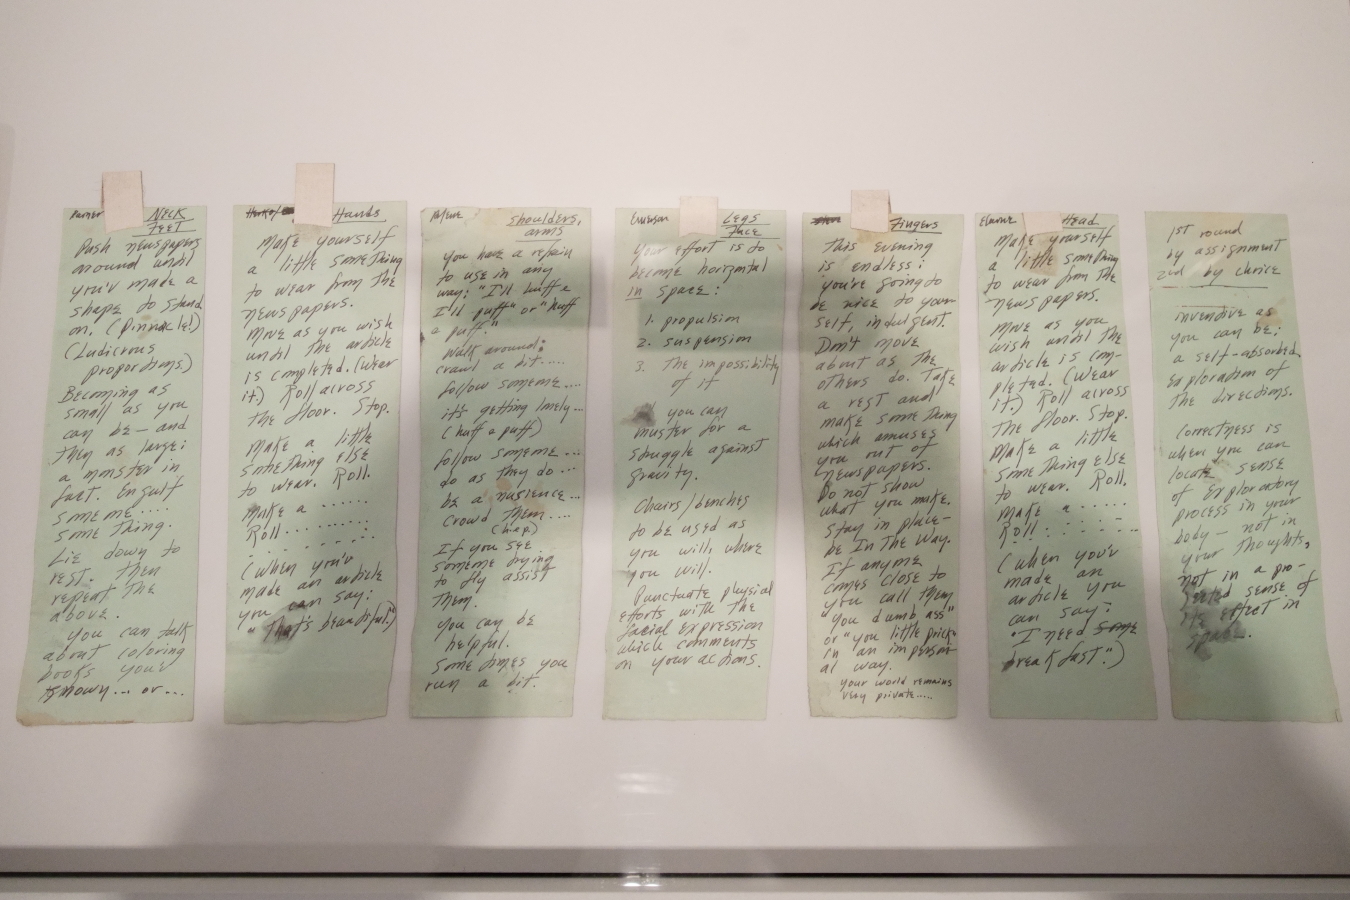 NECK
FEET
Push newspapers
around until
you'v made a
shape to stand
on. (Pinnacle!)
(Ludicrous
proportions.)
Becoming as
small as you
can be— and
then as large:
a monster in
fact. Engulf
someone....
some thing.
Lie down to
rest. Then
repeat the
above.
you can talk
about coloring
books you'v
known... or...
Hands
Make yourself
a little something
to wear from the
newspapers.
Move as you wish
until the article
is completed. (Wear
it.) Roll across
the floor. Stop.
Make a little
something else
to wear. Roll.
Make a ......
Roll.........
. . . . . . . .
(when you'v
made an article
you can say:
"That's beautiful.")
Arlene
Shoulders,
arms
you have a refrain
to use in any
way: "I'll huff &
I'll puff" or "huff
& puff."
Walk around:
crawl a bit....
follow someone....
it's getting lonely...
(huff & puff)
follow someone...
do as they do...
be a nusience...
crowd them....
(heap)
If you see
someone trying
to fly assist
them.
you can be
helpful.
Sometimes you
run a bit.
Emerson
Legs
Face
Your effort is to
become horizontal
in space:
1. propulsion
2. suspension
3. The impossibility
of it
you can
muster for a
struggle against
gravity.
Chairs/benches
to be used as
you will, where
you will.
Punctuate physical
efforts with the
facial expression
which comments
on your actions.
Fingers
This evening
is endless;
you're going to
be nice to your-
self, indulgent.
Don't move
about as the
others do. Take
a rest and
make something
which amuses
you out of
newspapers.
Do not show
what you make.
Stay in place—
be In The Way.
If anyone
comes close to
you call them
"you dumb ass"
or "you little prick"
in an imperson-
al way.
Your world remains
very private.....
Elaine
Head
Make yourself
a little something
to wear from the
newspapers.
Move as you
wish until the
article is com-
pleted. (Wear
it.) Roll across
the floor. Stop.
Make a little
something else
to wear. Roll.
Make a .....
Roll: . . . . . .
(when you'v
made an
article you
can say:
"I need some
breakfast.")
1st round
by assignment
2nd by choice
inventive as
you can be;
a self-absorbed
exploration of
the directions.
Correctness is
when you can
locate sense
of exploratory
process in your
body— not in
your thoughts,
not in a pro-
jected sense of
its effect in
space.